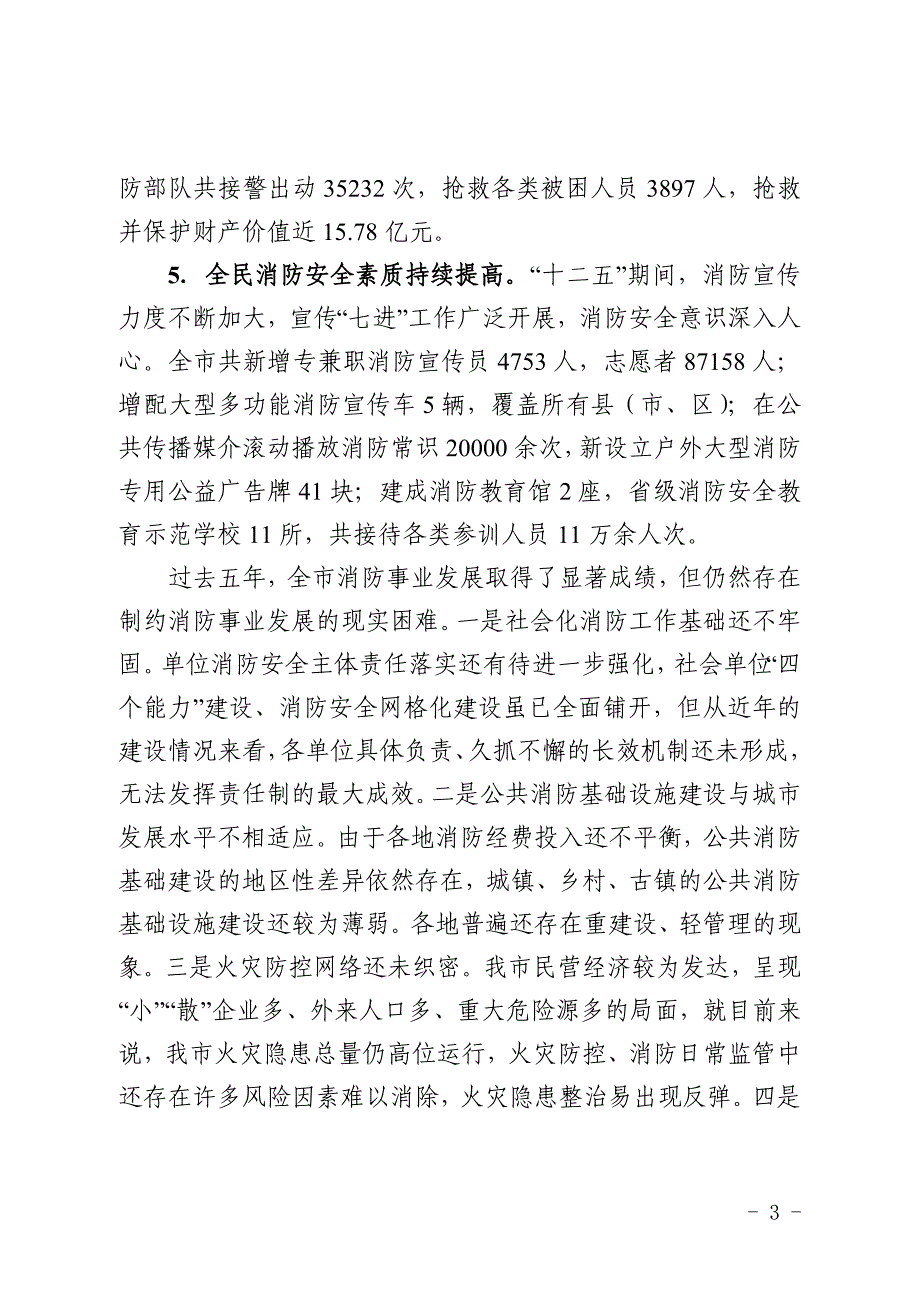 防部队共接警出动 35232 次，抢救各类被困人员 3897 人，抢救
并保护财产价值近 15.78 亿元。
5. 全民消防安全素质持续提高。“十二五”期间，消防宣传
力度不断加大，宣传“七进”工作广泛开展，消防安全意识深入人
心。全市共新增专兼职消防宣传员 4753 人，志愿者 87158 人；
增配大型多功能消防宣传车 5 辆，覆盖所有县（市、区）；在公
共传播媒介滚动播放消防常识 20000 余次，新设立户外大型消防
专用公益广告牌 41 块；建成消防教育馆 2 座，省级消防安全教
育示范学校 11 所，共接待各类参训人员 11 万余人次。
过去五年，全市消防事业发展取得了显著成绩，但仍然存在
制约消防事业发展的现实困难。一是社会化消防工作基础还不牢
固。单位消防安全主体责任落实还有待进一步强化，社会单位“四
个能力”建设、消防安全网格化建设虽已全面铺开，但从近年的
建设情况来看，各单位具体负责、久抓不懈的长效机制还未形成，
无法发挥责任制的最大成效。二是公共消防基础设施建设与城市
发展水平不相适应。由于各地消防经费投入还不平衡，公共消防
基础建设的地区性差异依然存在，城镇、乡村、古镇的公共消防
基础设施建设还较为薄弱。各地普遍还存在重建设、轻管理的现
象。三是火灾防控网络还未织密。我市民营经济较为发达，呈现
“小”“散”企业多、外来人口多、重大危险源多的局面，就目前来
说，我市火灾隐患总量仍高位运行，火灾防控、消防日常监管中
还存在许多风险因素难以消除，火灾隐患整治易出现反弹。四是
- 3 -